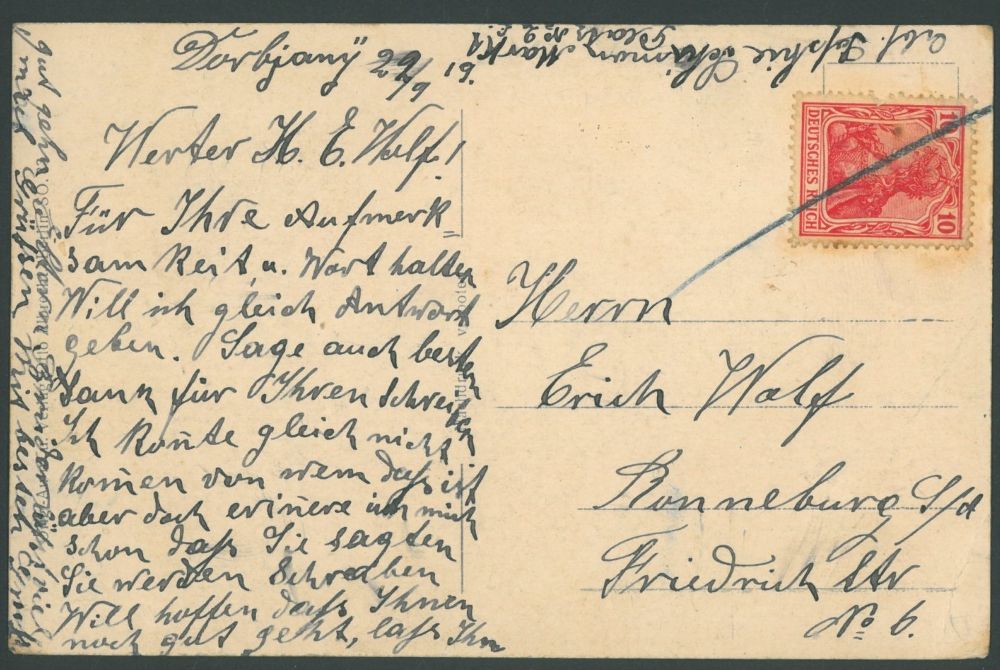 Dorbjany 29/6 19
Werter H. E. Wolf!
Für Ihre Aufmerk=
samkeit u. Wort halten
Will ich gleich Antwort
geben. Sage auch besten
Dank für Ihren schreiben
Ich konte gleich nicht
komen von wem daß ist
aber doch erinere ich mich
schon daß Sie sagten
Sie werden schreiben
Will hoffen daß Ihnen
noch gut geht, laß Ihn
gut gehn
mich Grüssen Mit besten Gruß
Abs. Sophie
Markt
Platz № 2
DEUTSCHES REICH
10
10
Herrn
Erich Wolf
Ronneburg S/a
Friedrich Str
№ 6.